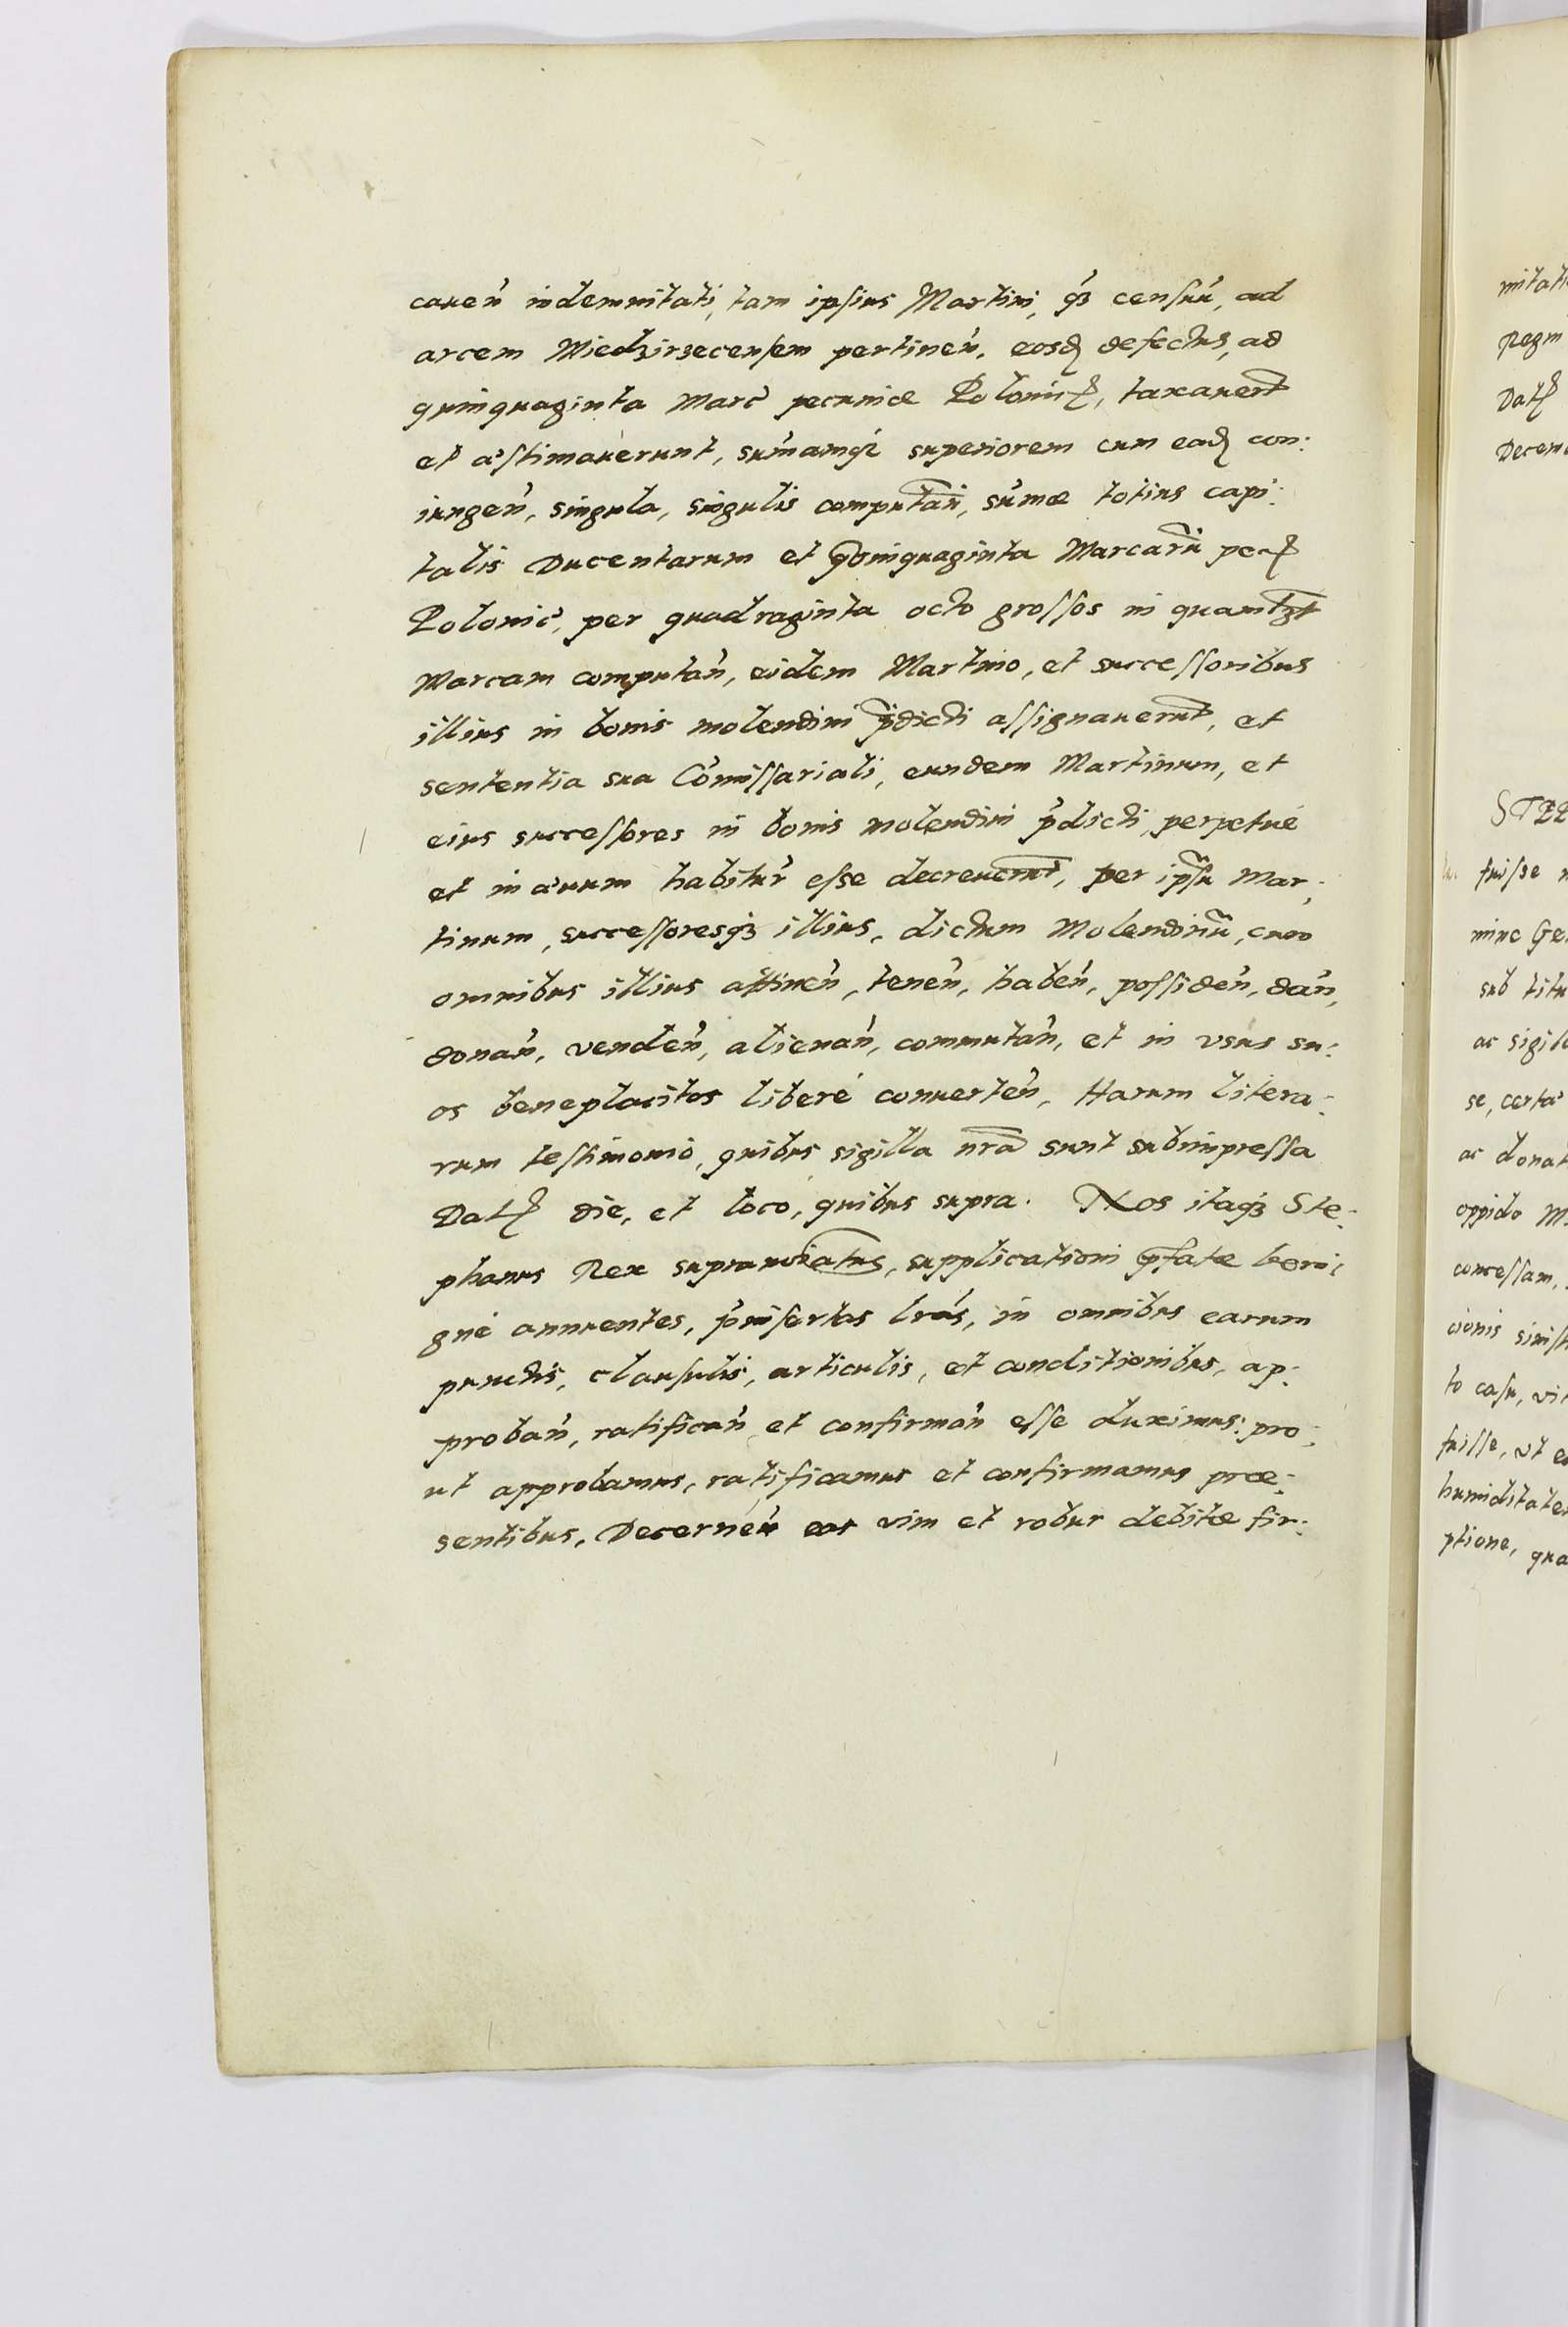 cauen̄ indemnitati, tam ipſius Martini, qʒ cenſuū, ad
arcem Miedzirzecenſem pertinen̄, eosd defectus, ad
quinquaginta Marc̄ pecuniæ Polonic, taxauerūt
et æſtimauerunt, sum̄amqʒ superiorem cum ead con:
iungen̄, singula, singulis computan̄, sum̄æ totius capi:
talis Ducentarum et quinquaginta Marcarū pec
Polonic̄, per quadraginta octo groſſos in quamlʒt
Marcam computan̄, eidem Martino, et succeſſoribus
illius in bonis molendini p̄dicti aſſignauerūt, et
sententia sua Com̄iſſariali, eundem Martinum, et
eius succeſſores in bonis molendini p̄dicti, perpetué
et in æuum habitur̄ eſse decreuerūt, per ipſū Mar:
tinum, succeſſoresqʒ illius, dictum Molendinū, cum
omnibus illius attinen̄, tenen̄, haben̄, poſſiden̄, dan̄,
donan̄, venden̄, alienan̄, commutan̄, et in vsus su:
os beneplacitos liberé conuerten̄, Harum litera:
rum teſtimonio, quibus sigilla nrā sunt subimpreſſa
Dat die, et loco, quibus supra. Nos itaqʒ Ste:
phanus Rex supranoīatus, supplicationi p̄fatæ beni:
gné annuentes, p̄inſertas lrās, in omnibus earum
punctis, clauſulis, articulis, et conditionibus, ap:
proban̄, ratifican̄ et confirman̄ eſſe duximus: pro:
ut approbamus, ratificamus et confirmamus præ:
sentibus, Decernen̄ eas vim et robur debitæ fir:
mitati
Regni
Dat
Decem
STE
fuiſse
sub titu
ac sigill
se, certa
ac donat
oppido M
conceſſam,
cionis siniſt
to caſu, vi
fuiſſe, vt e
humiditate
ptione, qua